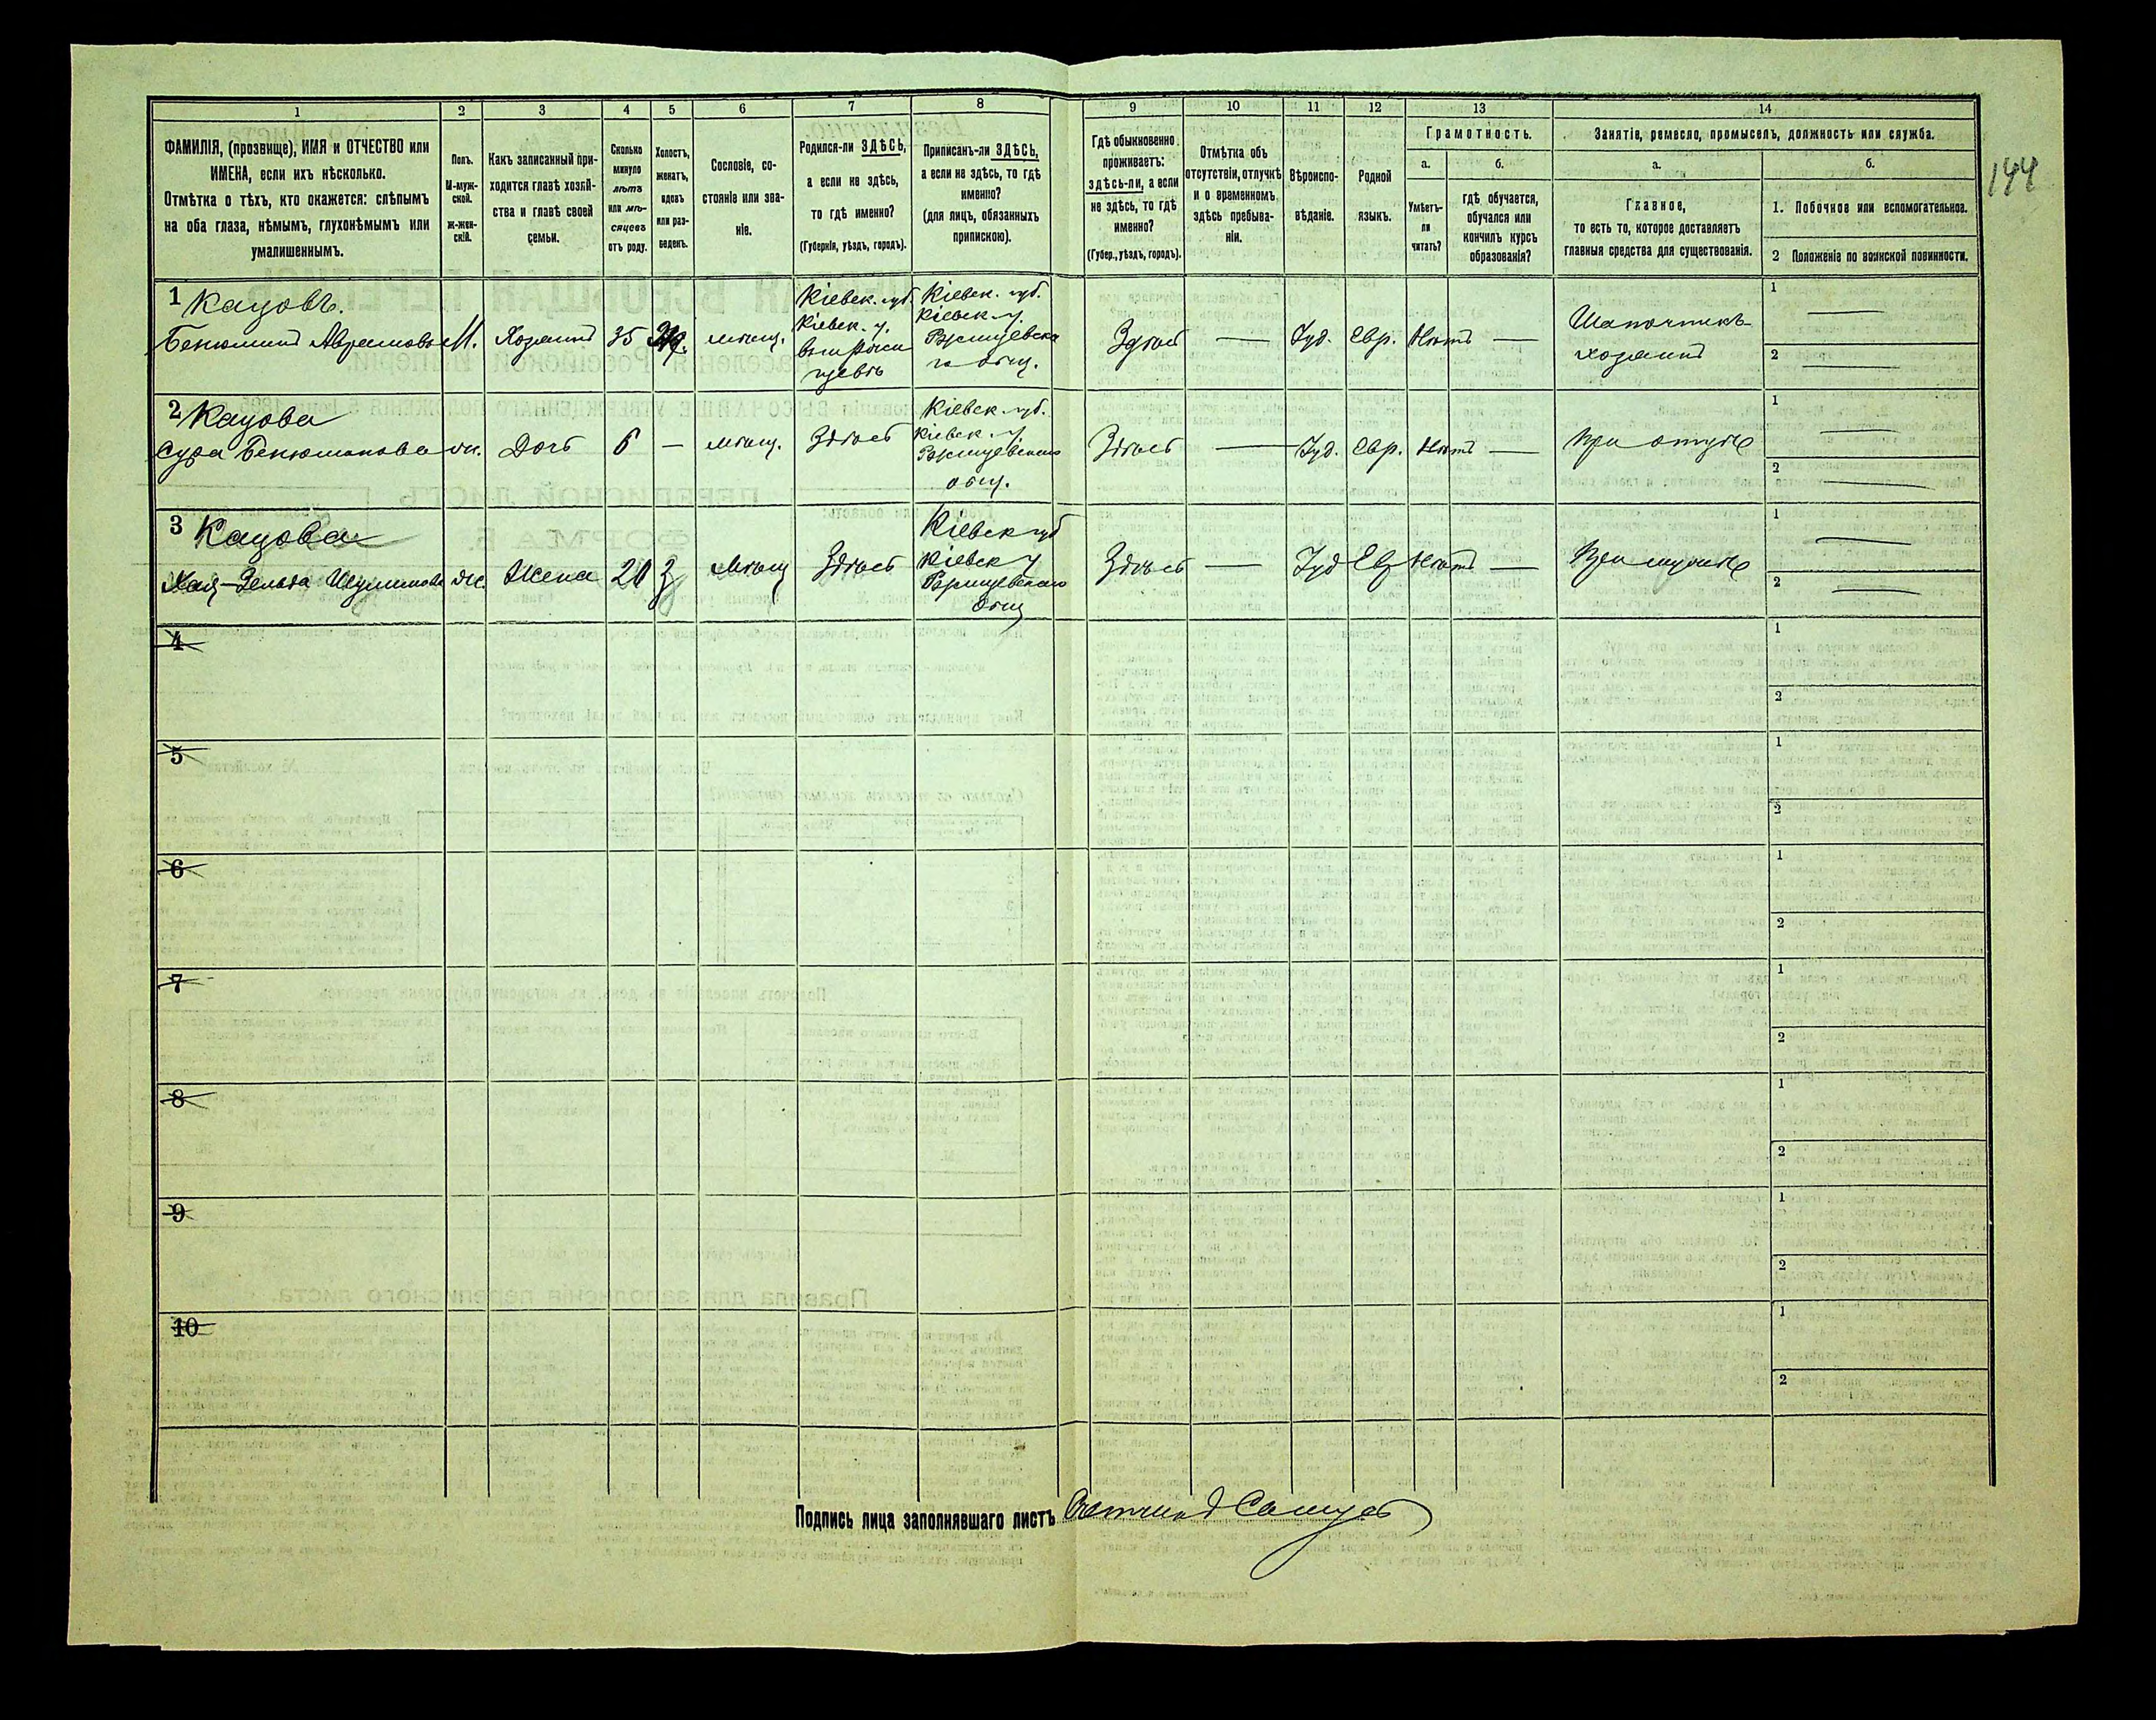 1 2 3 4 5 6 7 8 9 10 11 12 13 14
ФАМИЛІЯ, (прозвище), ИМЯ и ОТЧЕСТВО или
ИМЕНА, если ихъ нѣсколько.
Отмѣтка о тѣхъ, кто окажется: слѣпымъ
на оба глаза, нѣмымъ, глухонѣмымъ или
умалишеннымъ.
Полъ.
М-муж-
ской.
Ж-жен-
скій.
Какъ записанный при-
ходится главѣ хозяй-
ства и главѣ своей
семьи.
Сколько
минуло
лѣтъ
или мѣ-
сяцевъ
отъ роду.
Холостъ,
женатъ,
вдовъ
или раз-
веденъ.
Сословіе, со-
стояніе или зва-
ніе.
Родился-ли ЗДѢСЬ,
а если не здѣсь,
то гдѣ именно?
(Губернія, уѣздъ, городъ).
Приписанъ-ли ЗДѢСЬ,
а если не здѣсь, то гдѣ
именно?
(для лицъ, обязанныхъ
припискою).
Гдѣ обыкновенно
проживаетъ:
здѣсь-ли, а если
не здѣсь, то гдѣ
именно?
(Губер., уѣздъ, городъ).
Отмѣтка объ
отсутствіи, отлучкѣ
и о временномъ
здѣсь пребыва-
ніи.
Вѣроиспо-
вѣданіе.
Родной
языкъ.
Грамотность.
а. б.
Умѣетъ-
ли
читать?
гдѣ обучается,
обучался или
кончилъ курсъ
образованія?
Занятіе, ремесло, промыселъ, должность или служба.
а. б.
Главное,
то есть то, которое доставляетъ
главныя средства для существованія.
1. Побочное или вспомогательное.
2 Положеніе по воинской повинности.
144
1 Кацовъ.
Бенюминъ Аврамовъ М. Хозяинъ 35 мѣщ.
Кіевск. губ.
Кіевск. у.
Кіевск. губ.
Кіевск. у.
Ржищевска
го общ.
Здѣсь — Іуд. Евр. Нѣтъ —
Шапочникъ
хозяинъ
1 —
2 —
2 Кацова
Сура Бенюминова ж. Дочь 6 — мѣщ. Здѣсь
Кіевск. губ.
Кіевск. у.
Ржищевскаго
общ.
Здѣсь — Іуд. Евр. Нѣтъ — При отцѣ
1 —
2 —
3 Кацова
Хая-Зельда Шулимова ж. Жена 20 З Мѣщ Здѣсь
Кіевск губ
Кіевск у
Ржищевскаго
общ
Здѣсь — Іуд Ев Нѣтъ — При мужѣ
1 —
2 —
4 1
2
5 1
2
6 1
2
7 1
2
8 1
2
9 1
2
10 1
2
Подпись лица заполнявшаго листъ Счетчикъ